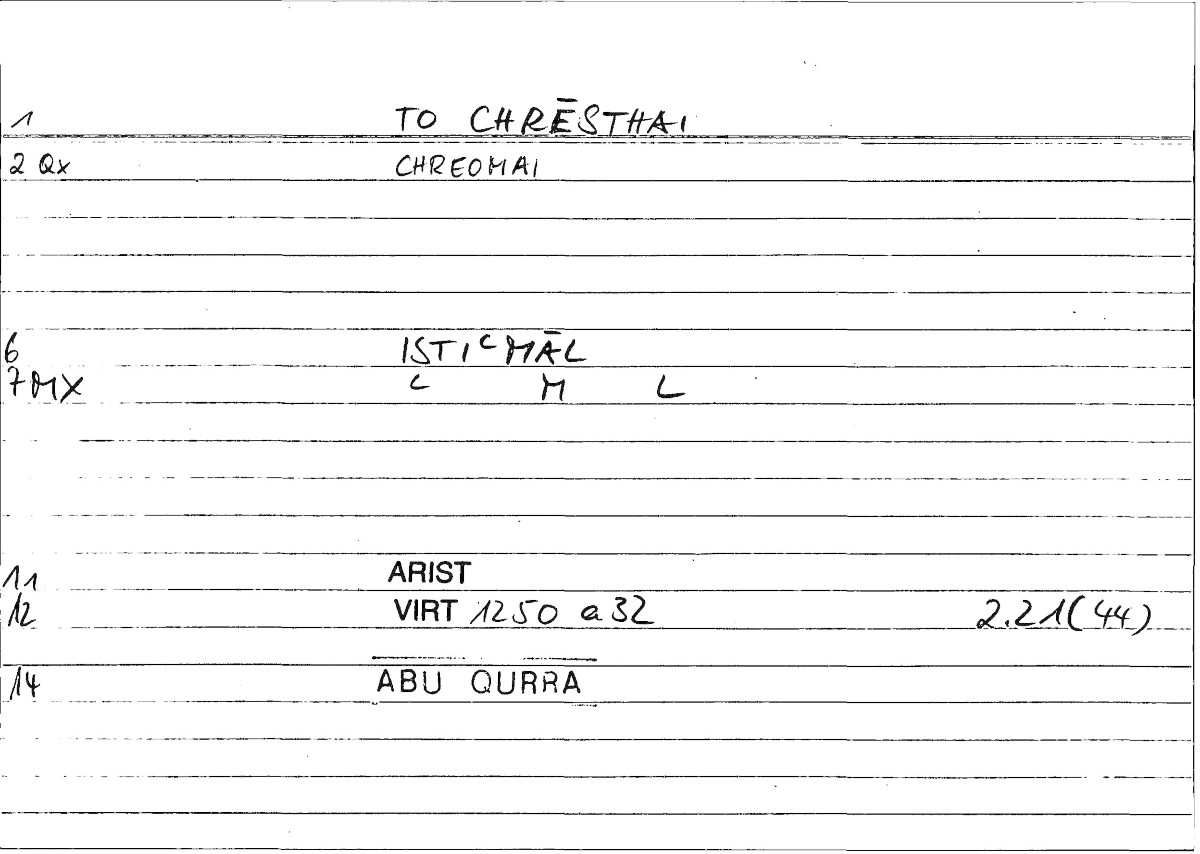 1 TO CHRĒSTHAI
2 Qx CHREOMAI
6 ISTIᶜMĀL
7 MX ᶜ M L
11 ARIST
12 VIRT 1250 a 32 2.21(44)
14 ABU QURRA